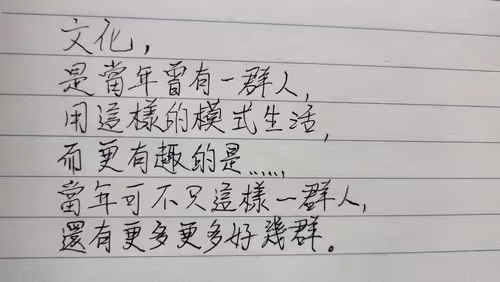 文化，
是當年曾有一群人，
用這樣的模式生活，
而更有趣的是……，
當年可不只這樣一群人，
還有更多更多好幾群。